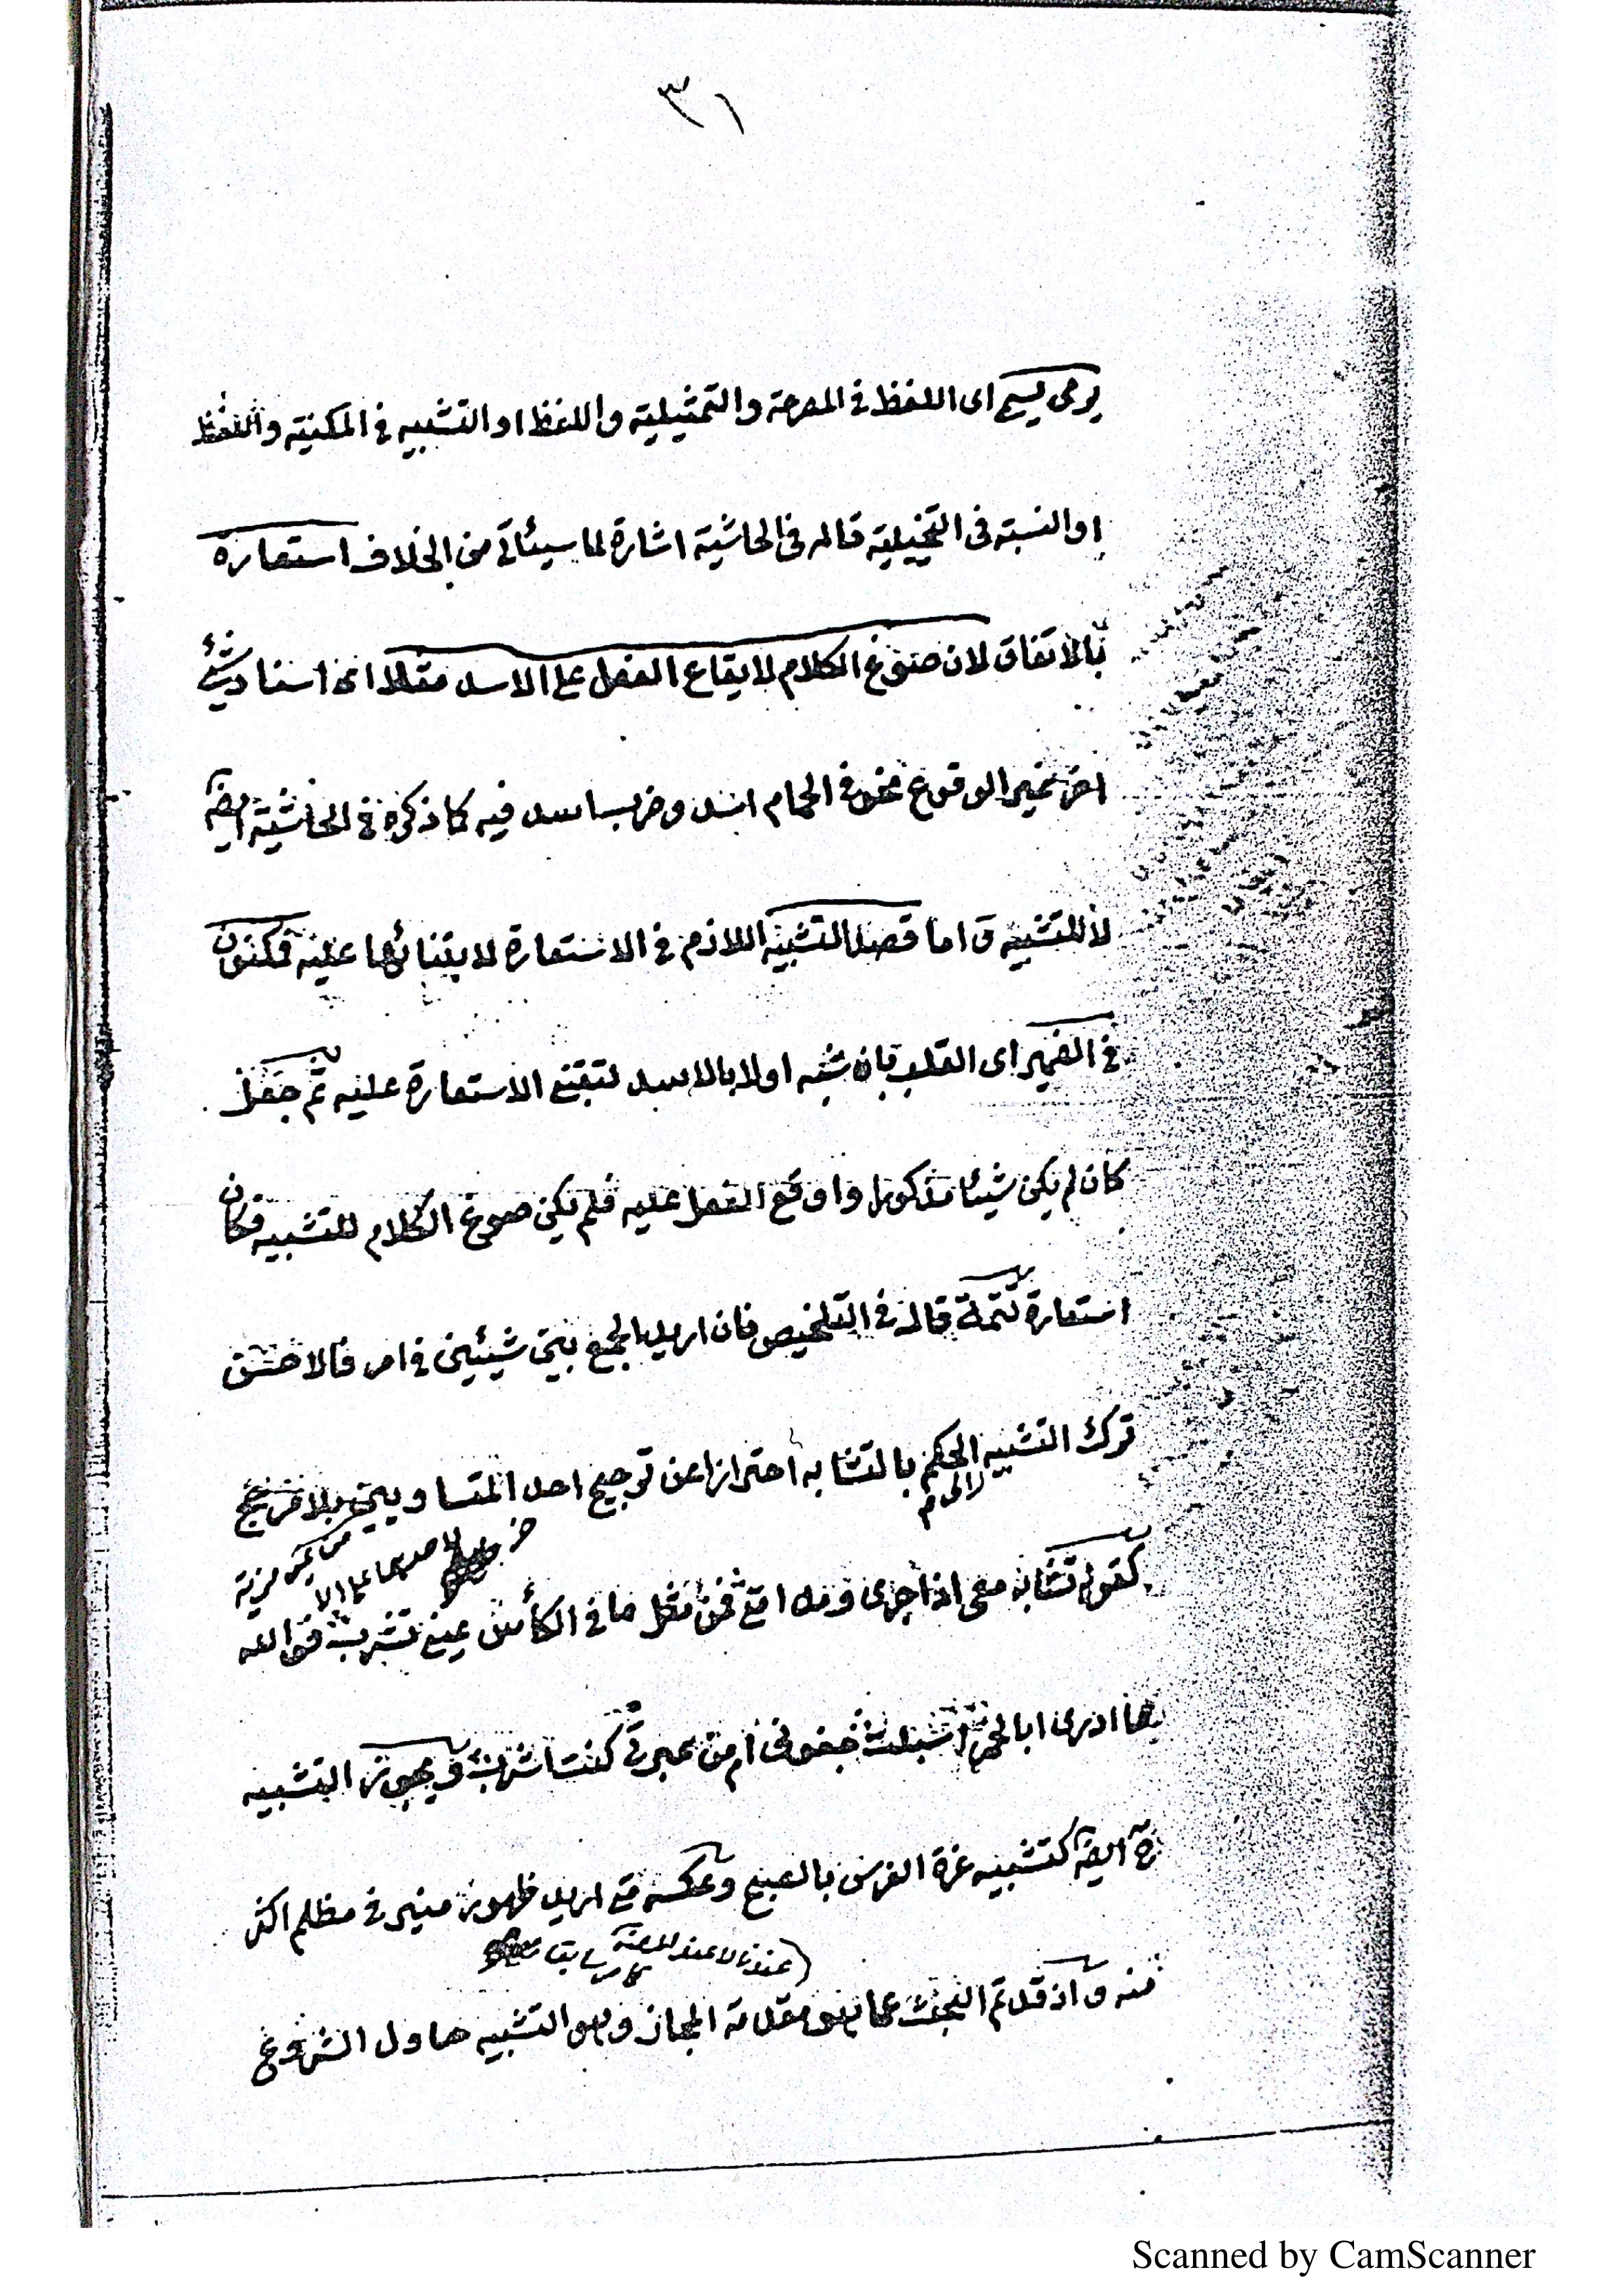 ٣١
يرمى يسمى اى اللفظ فى المصرحة والتمثيلية واللفظ او التشبيه فى المكنية واللفظ
او النسبة فى التخييلية قاله فى الحاشية اشارة لما سيئاتى من الخلاف استعارة
بالاتفاق لان صوغ الكلام لايقاع الفعل على الاسد مثلا اى اسناد شئ
اخر بخير الوقوع نحو فى الحمام اسد وضرب اسد فيه كما ذكره فى الحاشية ايضا
لا للتشبيه و اما قصد التشبيه اللازم فى الاستعارة لابتنائها عليه فمكنون
فى الضمير اى القلب بان شبه اولا بالاسد لتبتنى الاستعارة عليه ثم جعل
كان لم يكن شيئا مذكورا واوقع الفعل عليه فلم يكن صوغ الكلام للتشبيه فكان
استعارة تتمة قاله فى التلخيص فان اريد الجمع بين شيئين فى امر فالاحسن
ترك التشبيه الحكم بالتشابه احترازا عن ترجيح احد المتساويين بلا مرجح
الى
من غير مزية
لاحدهما على الا
كقوله تشابه دمعى اذ جرى ومدامتى فمن مثل ما فى الكأس عينى تشرب فوالله
ما ادرى ابالخمر اسبلت جفونى ام من عبرتى كنت اشرب ويجوز التشبيه
ايضا كتشبيه غرة الفرس بالصبح وعكسه متى اريد ظهور منير فى مظلم اكثر
عندنا لا عند المصنف كما سبق
منه و اذ قد تم البحث عما هو مقدمة المجاز وهو التشبيه حاول الشروع
Scanned by CamScanner